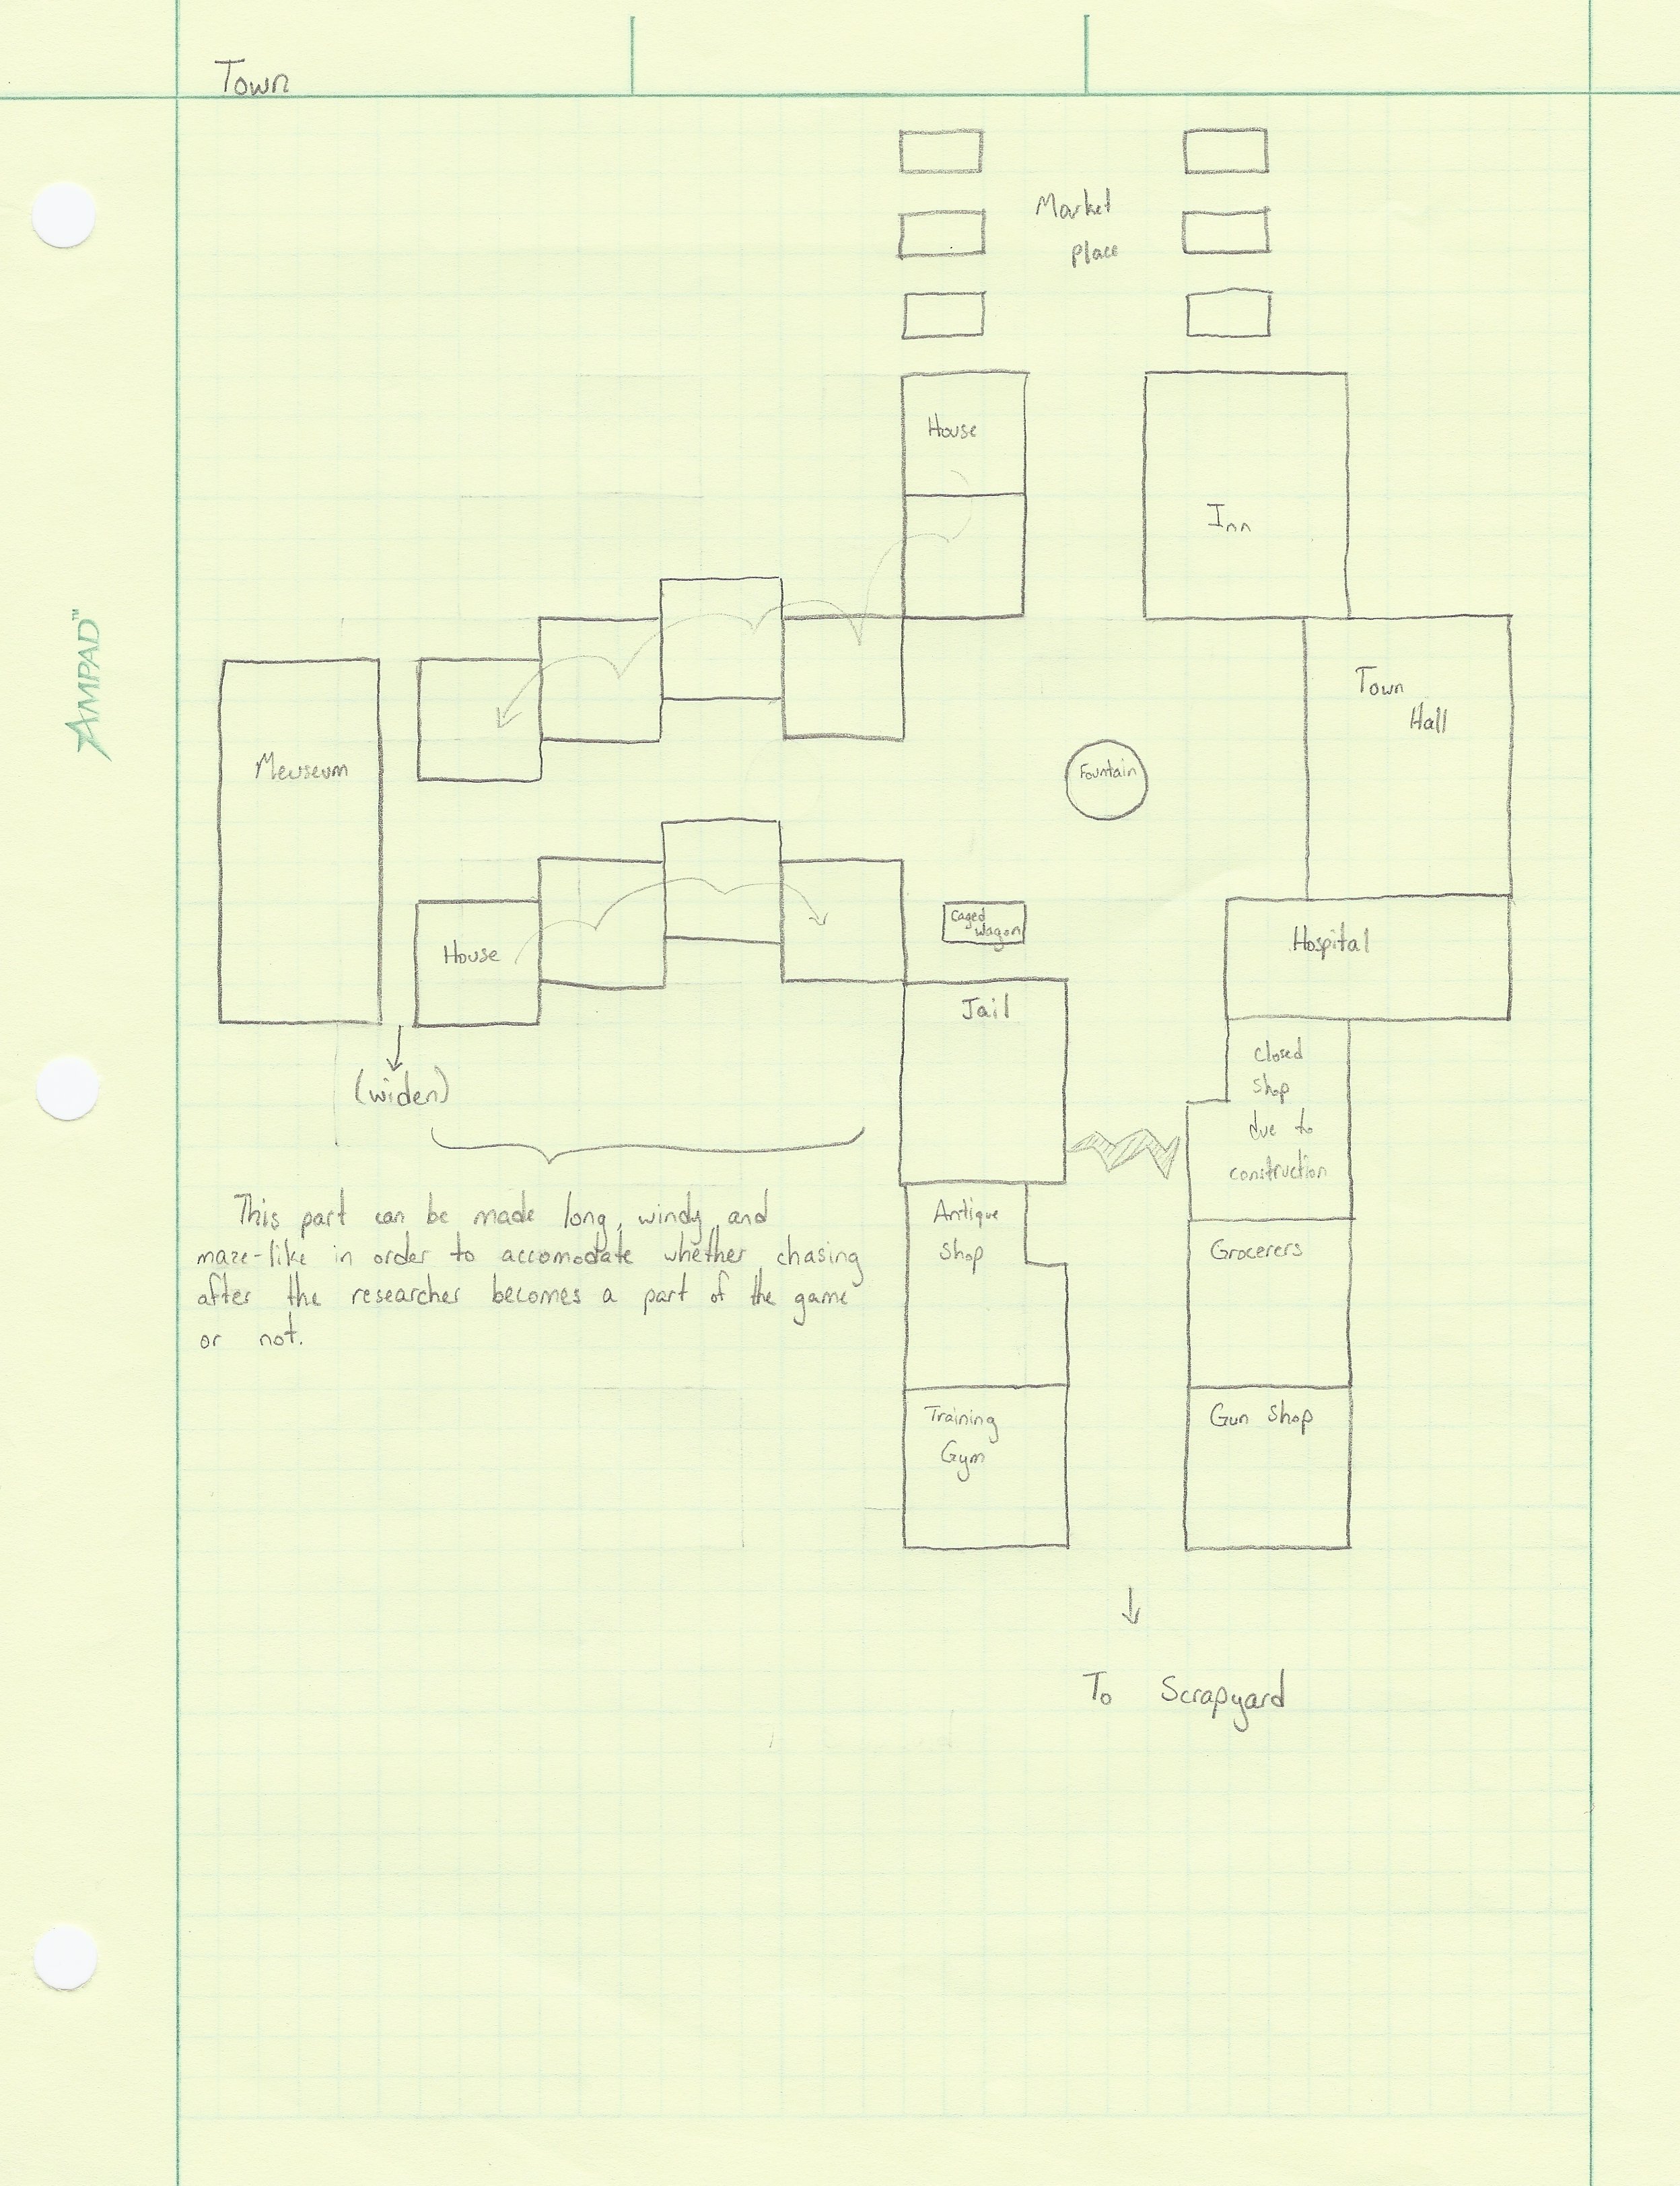 Town
Market
place
House
Inn
Town
Hall
Meuseum
Fountain
Caged
Wagon
House
Hospital
Jail
Closed
Shop
due to
construction
(widen)
This part can be made long, windy, and
maze-like in order to accomodate whether chasing
after the researcher becomes a part of the game
or not.
Antique
Shop
Grocerers
Training
Gym
Gun Shop
To Scrapyard
AMPAD™